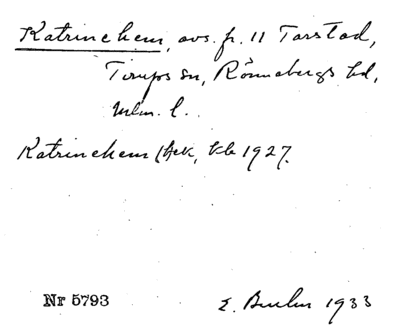 Katrinehem, avs. fr. 11 Tarstad,
Tirups sn, Rönnebergs hd,
Mlm. l.
Katrinehem (Aek, kb 1927.
Nr 5793
E. 1933